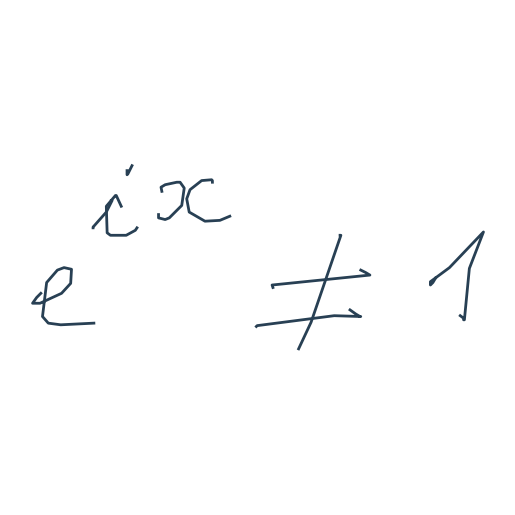 e^{ix} ≠ 1